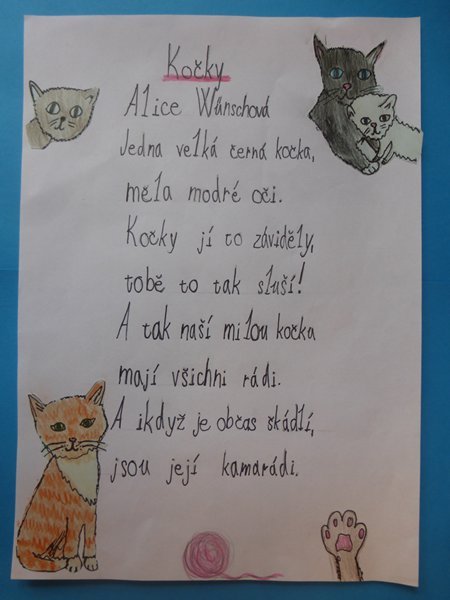 Kočky
Alice Wünschová
Jedna velká černá kočka,
měla modré oči.
Kočky jí to záviděly,
tobě to tak sluší!
A tak naší milou kočka
mají všichni rádi.
A ikdyž je občas škádlí,
jsou její kamarádi.